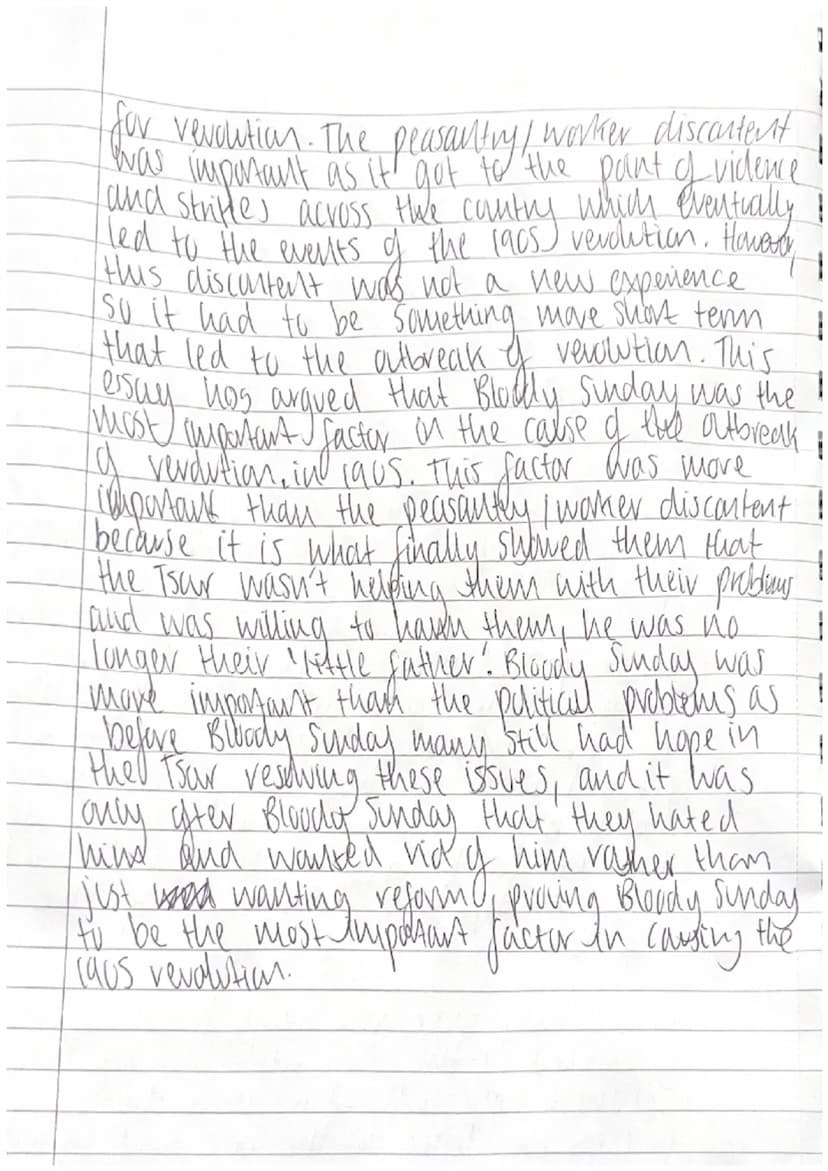 for revolution. The peasantry/worker discontent
was important as it got to the point of violence
and strikes across the country which eventually
led to the events of the 1905 revolution. However,
this discontent was not a new experience
so it had to be something more short term
that led to the outbreak of revolution. This
essay has argued that Bloody Sunday was the
most important factor in the cause of the outbreak
of revolution in 1905. This factor was more
important than the peasantry/worker discontent
because it is what finally showed them that
the Tsar wasn't helping them with their problems
and was willing to harm them, he was no
longer their 'little father'. Bloody Sunday was
more important than the political problems as
before Bloody Sunday many still had hope in
the Tsar resolving these issues, and it was
only after Bloody Sunday that they hated
him and wanted rid of him rather than
just wanting reform, proving Bloody Sunday
to be the most important factor in causing the
1905 revolution.